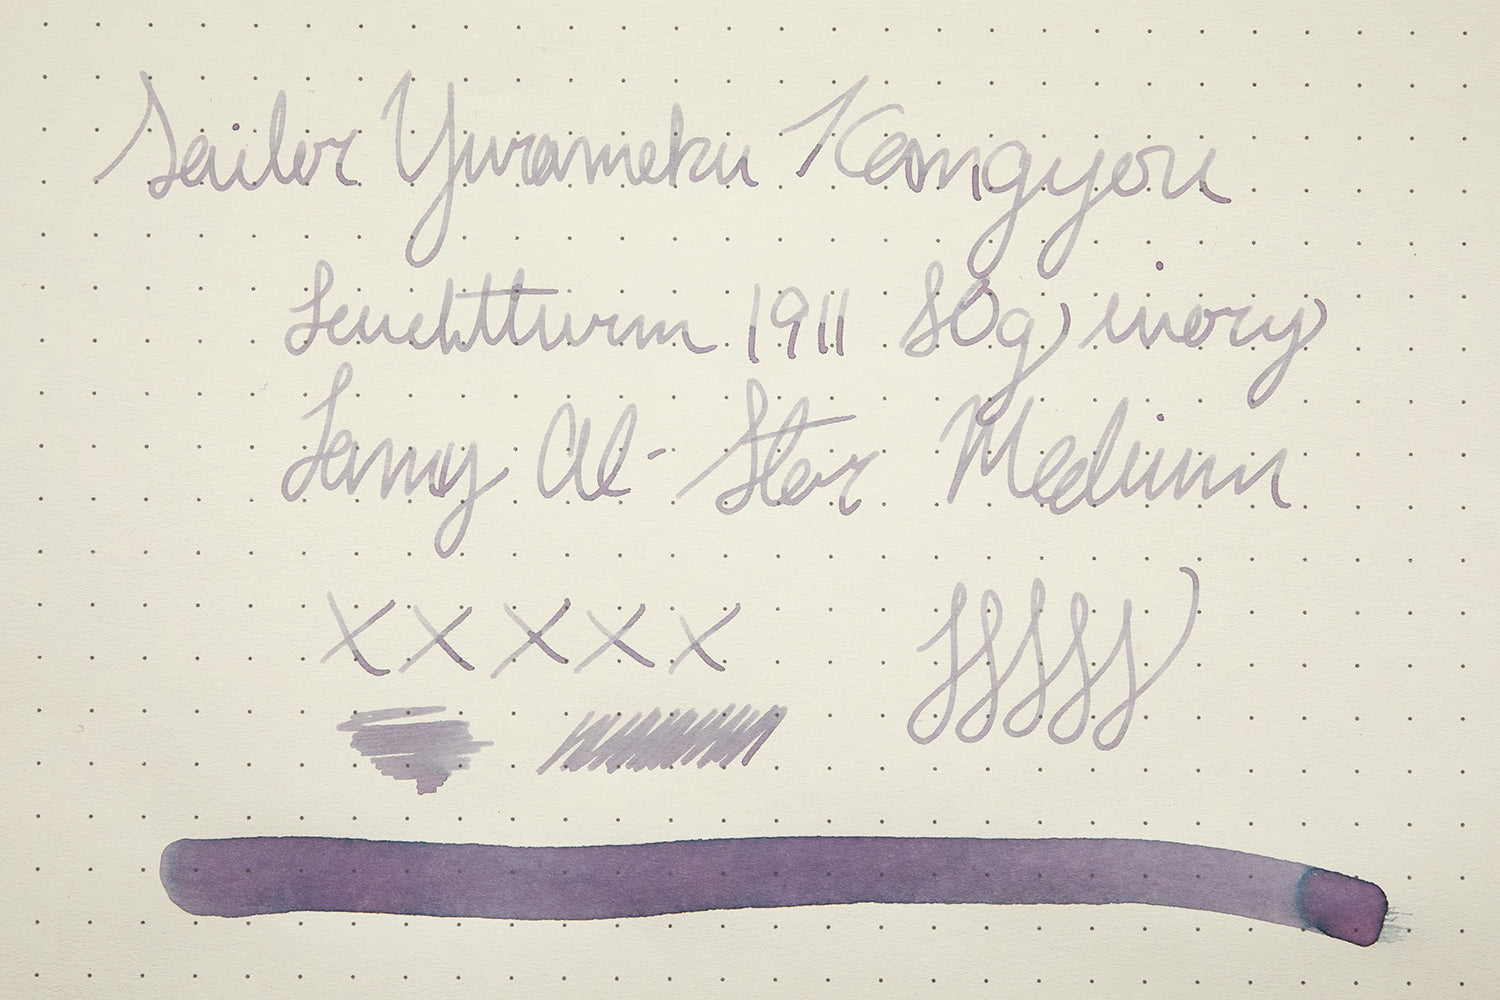 Sailor Yurameku Kangyou
Leuchtturm 1911 80g ivory
Lamy Al-Star Medium
X X X X X